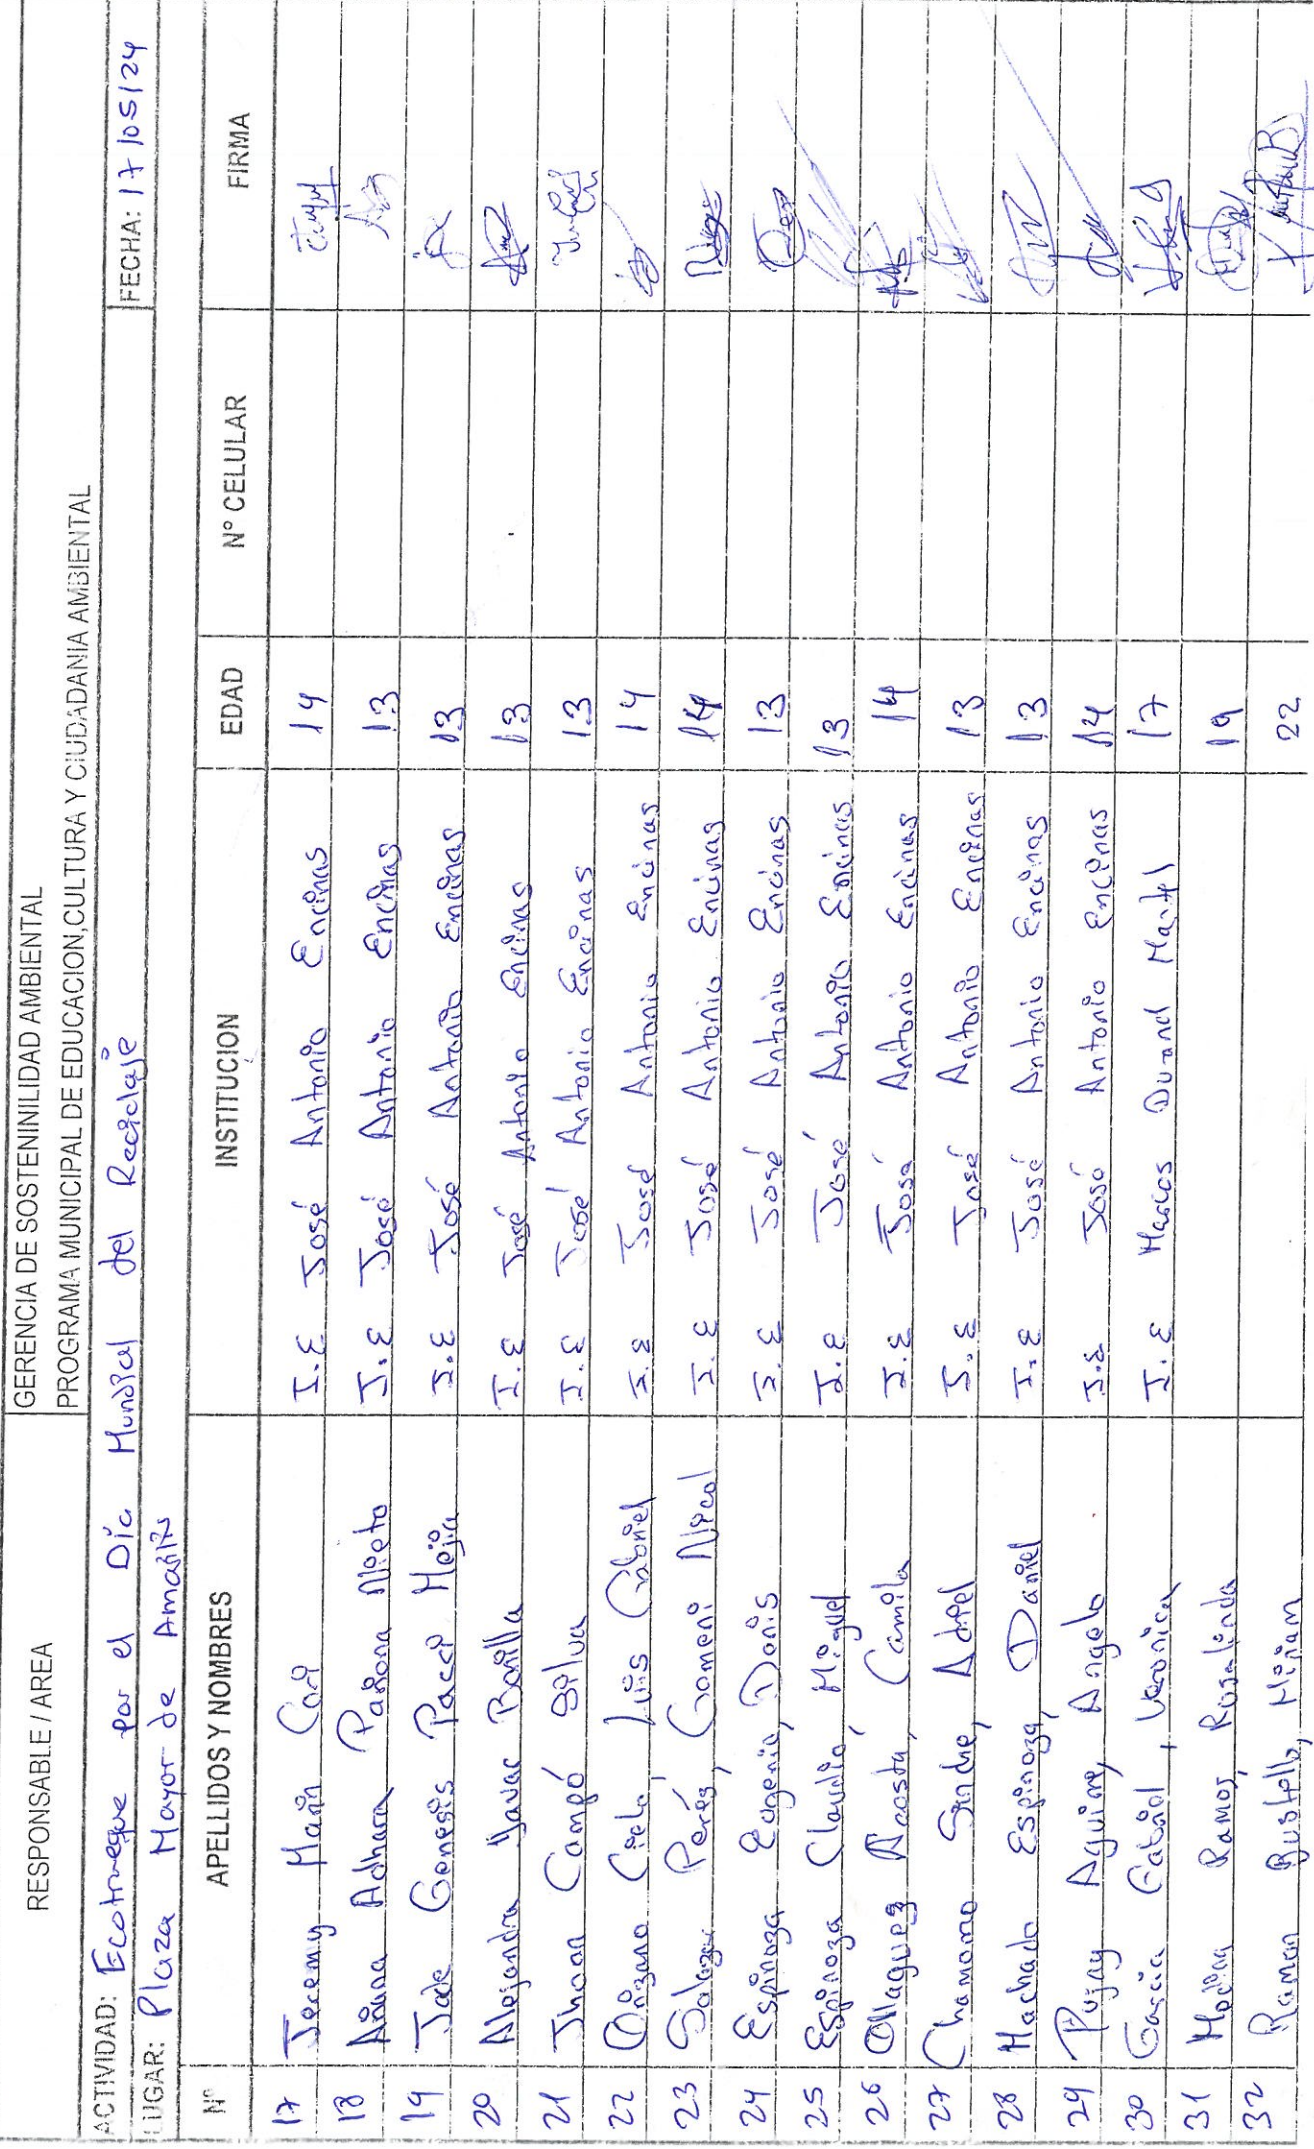 RESPONSABLE / AREA GERENCIA DE SOSTENINILIDAD AMBIENTAL
PROGRAMA MUNICIPAL DE EDUCACION,CULTURA Y CIUDADANIA AMBIENTAL
ACTIVIDAD: Ecotrueque por el Día Mundial del Reciclaje
LUGAR: Plaza Mayor de Amarilis FECHA: 17/05/24
N° APELLIDOS Y NOMBRES INSTITUCION EDAD N° CELULAR FIRMA
17 Jeremy Marin Cori I.E José Antonio Encinas 14
18 Adhara Nieto I.E José Antonio Encinas 13
19 Jade Genesis Pacci Mejia I.E José Antonio Encinas 13
20 Alejandra Yavar Bonilla I.E José Antonio Encinas 13
21 Jhoan Campó Silva I.E José Antonio Encinas 13
22 Cielo, Luis Gabriel I.E José Antonio Encinas 14
23 Salazar Peréz, Gomeni Nicol I.E José Antonio Encinas 14
24 Espinoza Eugenio, Donis I.E José Antonio Encinas 13
25 Espinoza Claudio, Miguel I.E José Antonio Encinas 13
26 Ollaguez Acosta, Camila I.E José Antonio Encinas 14
27 Chamorro Adriel I.E José Antonio Encinas 13
28 Machado Espinoza, Daniel I.E José Antonio Encinas 13
29 Pujay Aguirre, Angelo I.E José Antonio Encinas 14
30 Garcia Gabriel, Veronica I.E Marcos Durand Martel 17
31 Medina Ramos, Rosalinda 19
32 Ramon Bustillo, Miriam 22